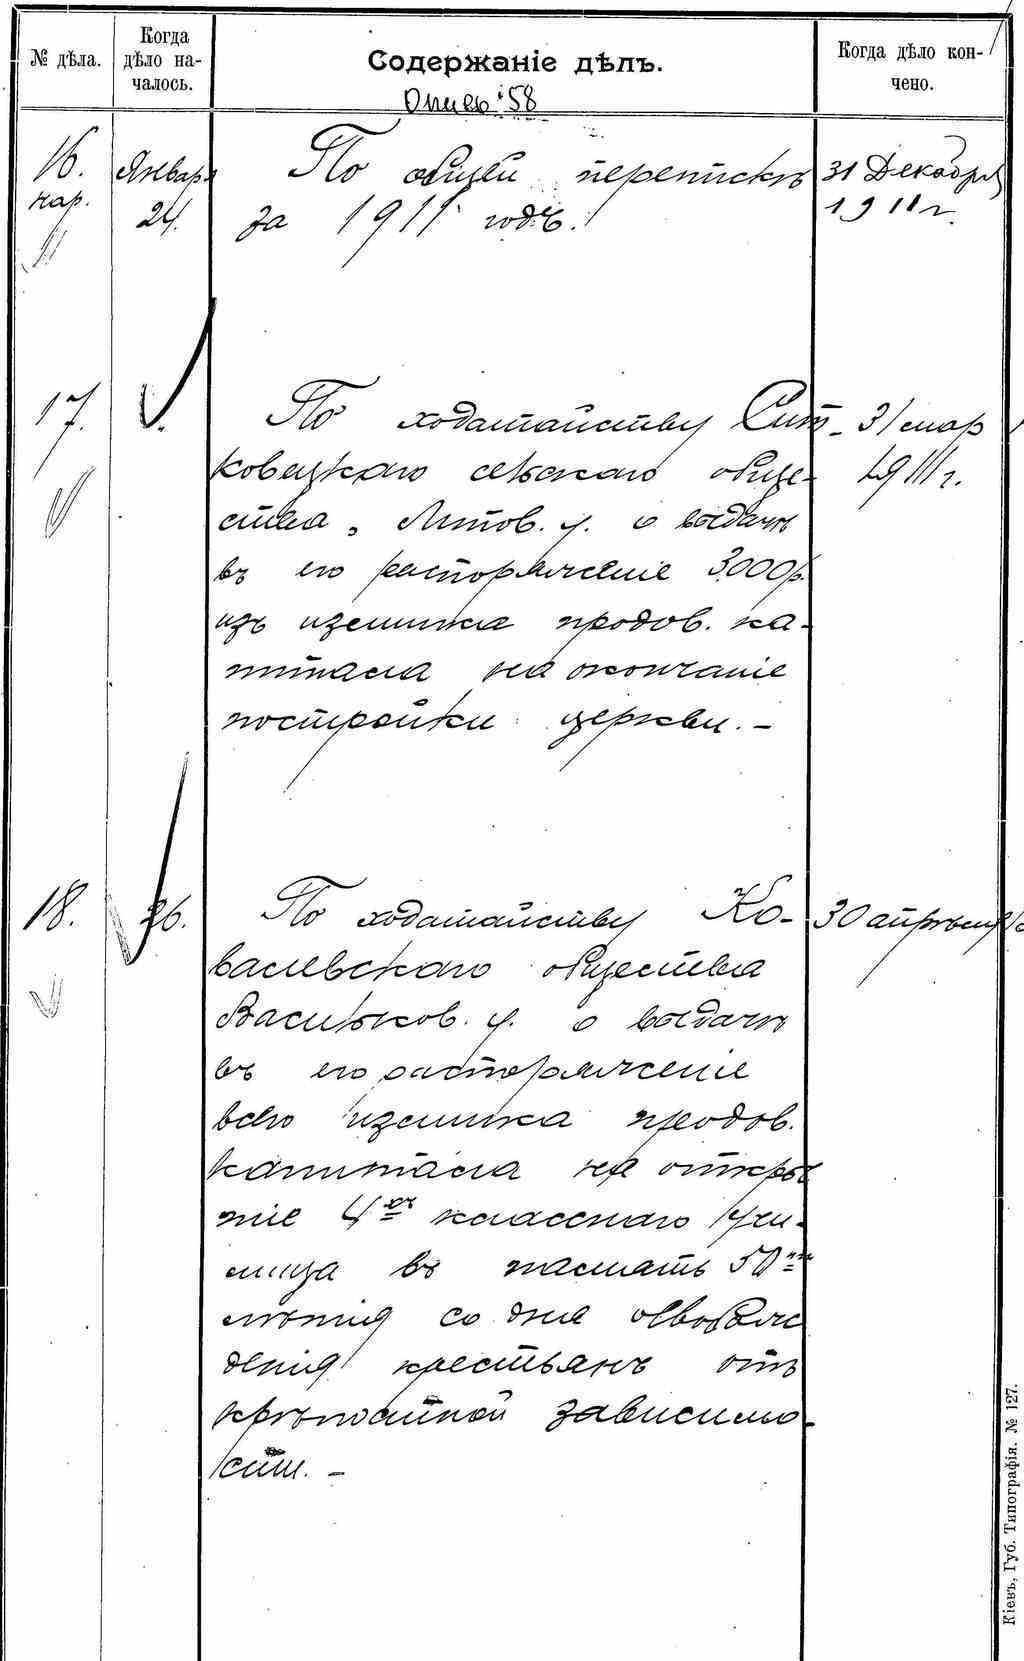 № дѣла.
Когда
дѣло на-
чалось.
Содержаніе дѣлъ.
Когда дѣло кон-
чено.
Опись 58
16.
нар.
Января
24.
По общей перепискѣ
за 1911 годъ.
31 Декабря
1911 г.
17.
По ходатайству Сит-
ковецкаго сельскаго обще-
ства, Липов. у. о выдачѣ
въ его распоряженіе 3000 р.
изъ излишка продов. ка-
питала на окончаніе
постройки церкви. –
31 мар
1911 г.
18.
26.
По ходатайству Ко-
валевскаго общества
Васильков. у. о выдачѣ
въ его распоряженіе
всего излишка продов.
капитала на откры
тіе 4хъ класснаго учи-
лища въ память 50ти
лѣтія со дня освобож
денія крестьянъ отъ
крѣпостной зависимо-
сти. –
30 апрѣля
Кіевъ, Губ. Типографія. № 127.